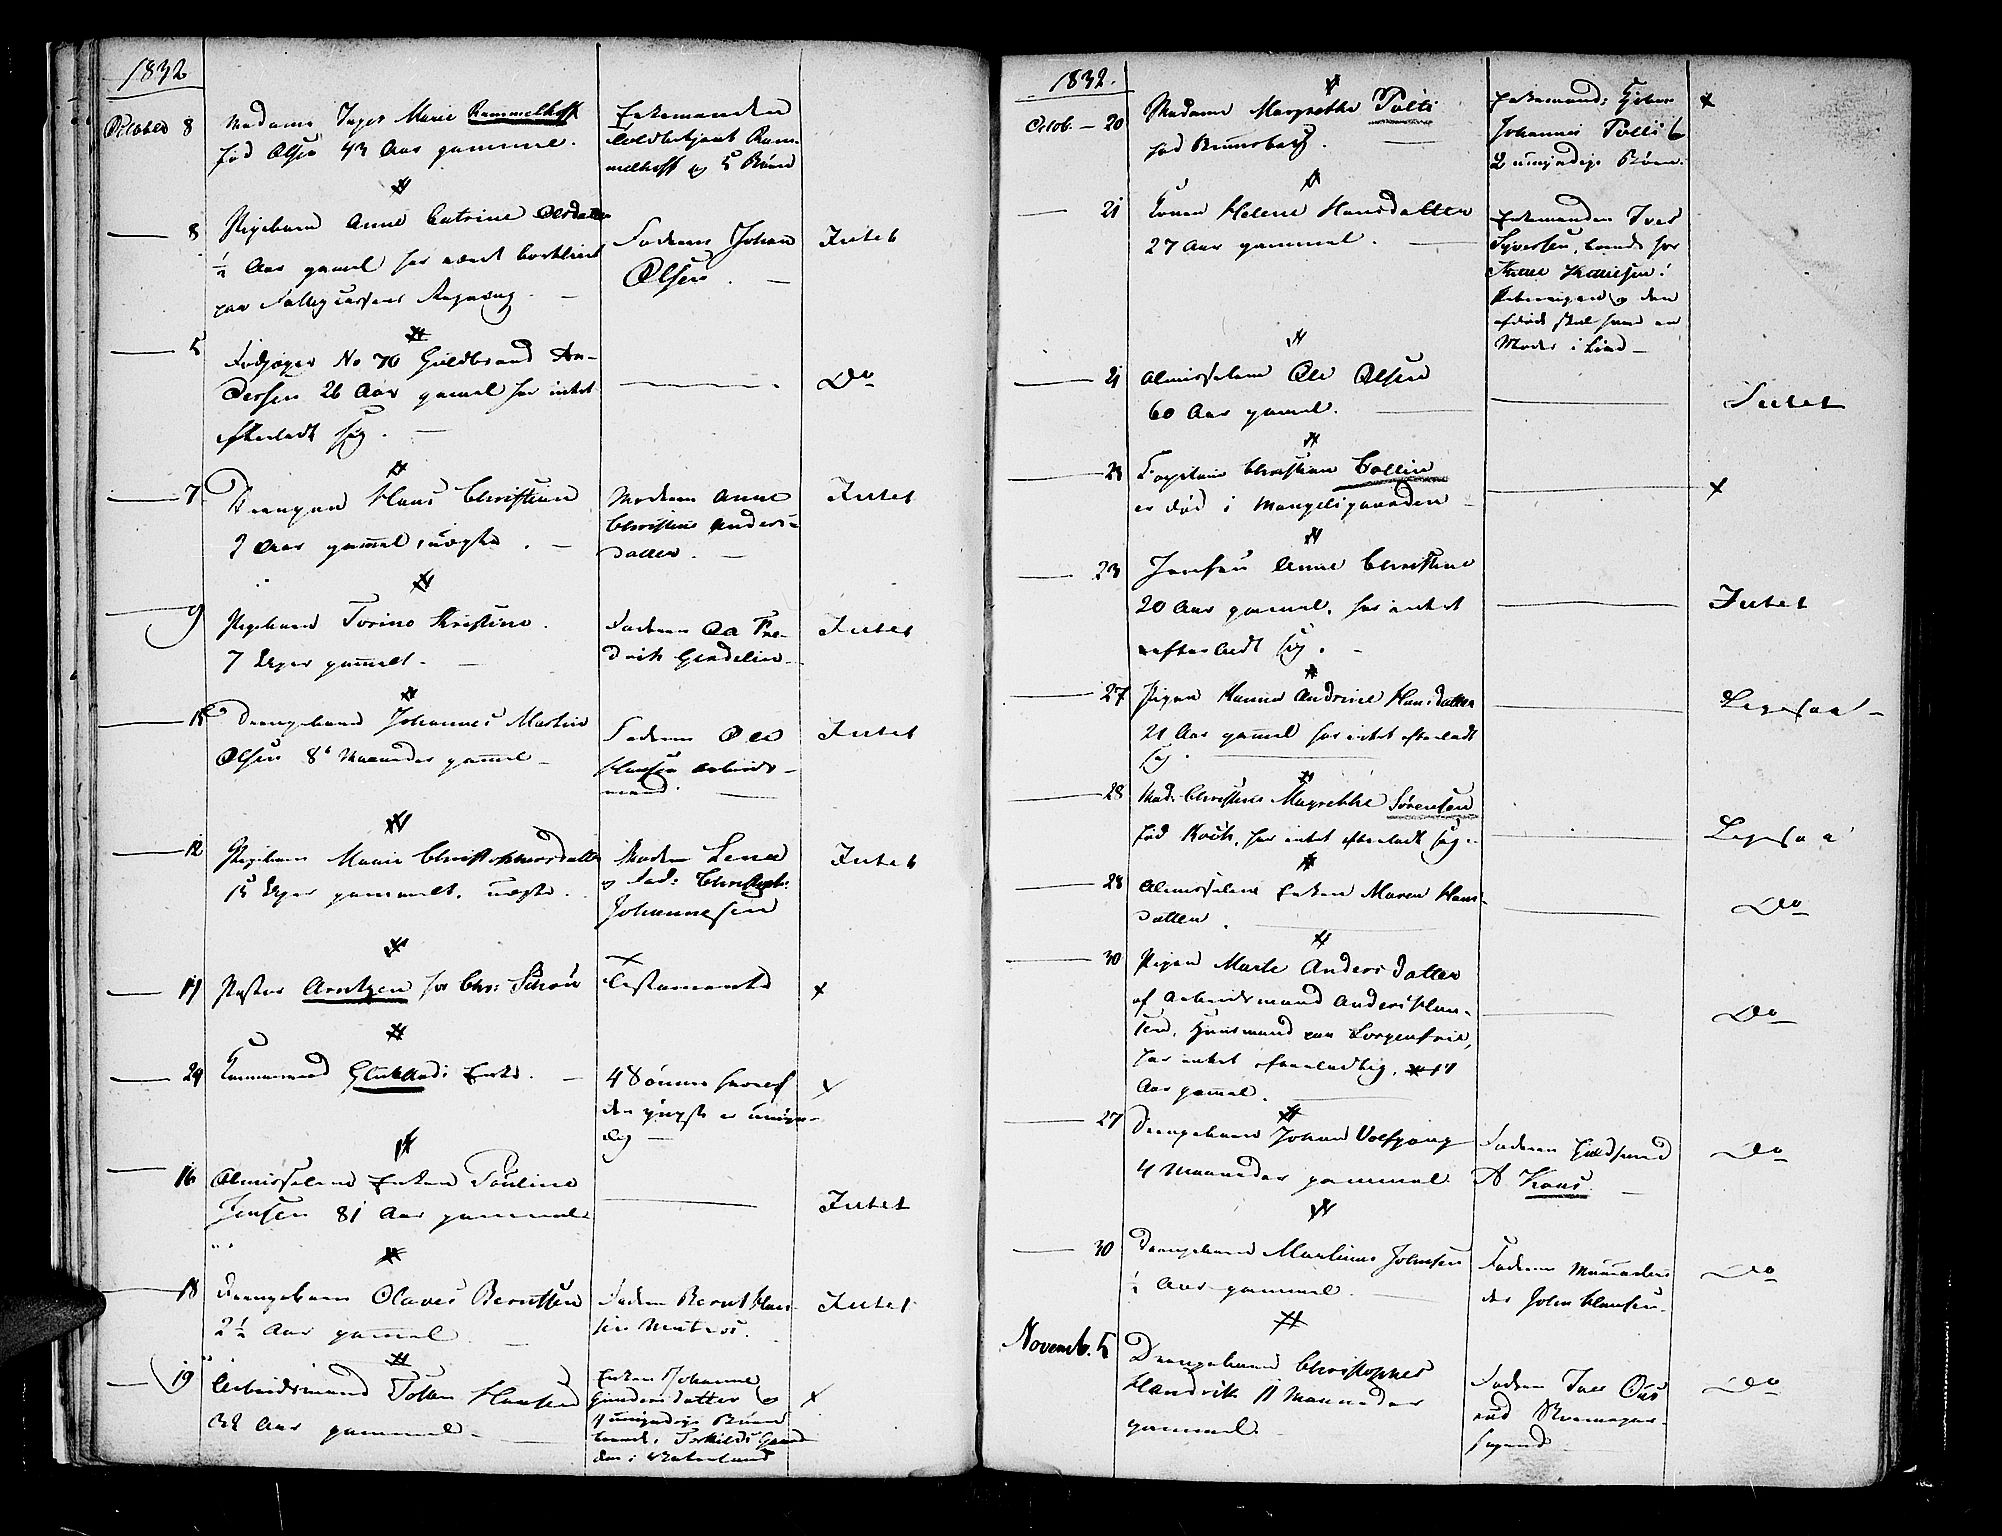 1832
October 8 Madame Inger Marie Rommelhoff
fød Olsen 43 Aar gammel.
Enkemanden
Toldbetjent Rom-
melhoff og 5 Børn
8 Pigebarn Anne Catrine Olsdatter
½ Aar gamel har været bortliciteret
paa Fattigcassens Regning.
Faderen Johan
Olsen.
Intet
5 Fodjæger No 70 Guldbrand An-
dersen 26 Aar gamel har intet
efterladt sig.
Do
7 Drengen Hans Christian
9 Aar gamel uægte.
Moderen Anne
Christine Anders-
datter.
Intet
9 Pigebarn Torine Kristine.
7 Uger gamelt.
Faderen Ole Fre-
drik Gendelin
Intet
Drengebarn Johannes Martin
Olsen 8 Maaneder gamel
Faderen Ole
Hansen Arbeids-
mand.
Intet
12 Pigebarn Marie Christophersdatter
15 Uger gammelt. uægte.
Moderen Lena
og Fad: Christoph:
Johannesen
Intet
Pastor Arntzen for Chr: Schou
Testamente
x
24 Kammerraad Enke.
4 Sønner hvoraf
den yngste er umyn-
dig
x
16 Almisselem Enken Pauline
Jensen 81 Aar gammel
Intet
18 Drengebarn Olaves Berntsen
2½ Aar gamel
Faderen Bernt Han-
sen Matros.
Intet
19 Arbeidsmand Johan Hansen
32 Aar gammel
Enken Johanne
Gundersdatter og
4 umyndige Børn
x
1832.
Octob. 20 Madame Margrethe Tolli
fød Brunsberg.
Enkemand:
Johannes Tolli &
2 umyndige Børn.
x
21 Konen Helene Hansdatter
27 Aar gammel.
Enkemanden Iver
Syversen, boende hos
afdøde skal have en
Moder i Live
21 Almisselem Ole Olsen
60 Aar gamel.
Intet
23 Capitain Christian Collin
er død i Mangelsgaarden
x
23 Jensen Anne Christine
20 Aar gamel, har intet
efterladt sig.
Intet
27 Pigen Hanna Andrine Hansdatter
21 Aar gamel har intet efterladt
sig.
Ligesaa
28 Mad: Christine Magrethe Sørensen
fød Koch, har intet efterladt sig.
Ligesaa
28 Almisselem Enken Maren Hans-
datter.
Do
30 Pigen Marte Andersdatter
af Arbeidsmand Anders Han-
sen, Huusmand paa Sorgenfrie,
har intet efterladt sig,
Aar gamel.
Do
27 Drengebarn Johan Volfgang
4 Maaneder gammel
Faderen Guldsmed
A Kraus.
Do
30 Drengebarn Martinus Johnsen
½ Aar gammel.
Faderen
John Hansen.
Do
Novemb. 5 Drengebarn Christopher
Hendrik 11 Maaneder
gammel.
Faderen Iver Ous
rud Skomager-
svend
Do